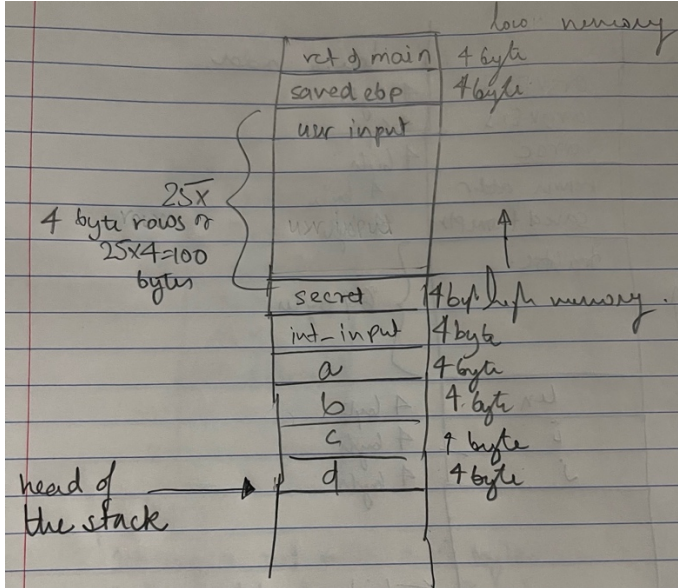 low memory
ret of main 4 byte
saved ebp 4 byte
user input
25x
4 byte rows or
25x4=100
bytes
secret 4 byte
high memory.
int_input 4 byte
a 4 byte
b 4 byte
c 4 byte
d 4 byte
head of
the stack